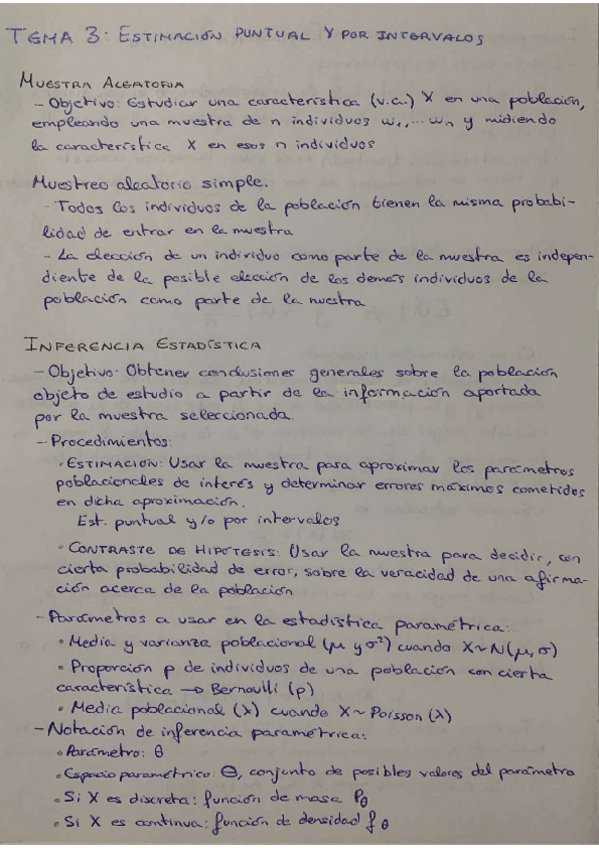 TEMA 3: ESTIMACIÓN PUNTUAL Y POR INTERVALOS
MUESTRA ALEATORIA
- Objetivo: Estudiar una característica (v.a.) X en una población,
empleando una muestra de n individuos ω₁,... ωn y midiendo
la característica X en esos n individuos
Muestreo aleatorio simple.
- Todos los individuos de la población tienen la misma probabi-
lidad de entrar en la muestra
- La elección de un individuo como parte de la muestra es indepen-
diente de la posible elección de los demás individuos de la
población como parte de la muestra
INFERENCIA ESTADÍSTICA
- Objetivo: Obtener conclusiones generales sobre la población
objeto de estudio a partir de la información aportada
por la muestra seleccionada.
- Procedimientos:
· ESTIMACIÓN: Usar la muestra para aproximar los parámetros
poblacionales de interés y determinar errores máximos cometidos
en dicha aproximación.
Est. puntual y/o por intervalos
· CONTRASTE DE HIPÓTESIS: Usar la muestra para decidir, con
cierta probabilidad de error, sobre la veracidad de una afirma-
ción acerca de la población
- Parámetros a usar en la estadística paramétrica:
• Media y varianza poblacional (μ y σ²) cuando X~N(μ,σ)
• Proporción p de individuos de una población con cierta
característica → Bernoulli (p)
• Media poblacional (λ) cuando X ~ Poisson (λ)
- Notación de inferencia paramétrica:
• Parámetro: θ
• Espacio paramétrico: Θ, conjunto de posibles valores del parámetro
• Si X es discreta: función de masa Pθ
• Si X es continua: función de densidad fθ